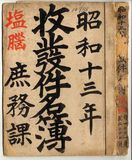 昭和十三年
收發件名簿
塩腦
庶務課